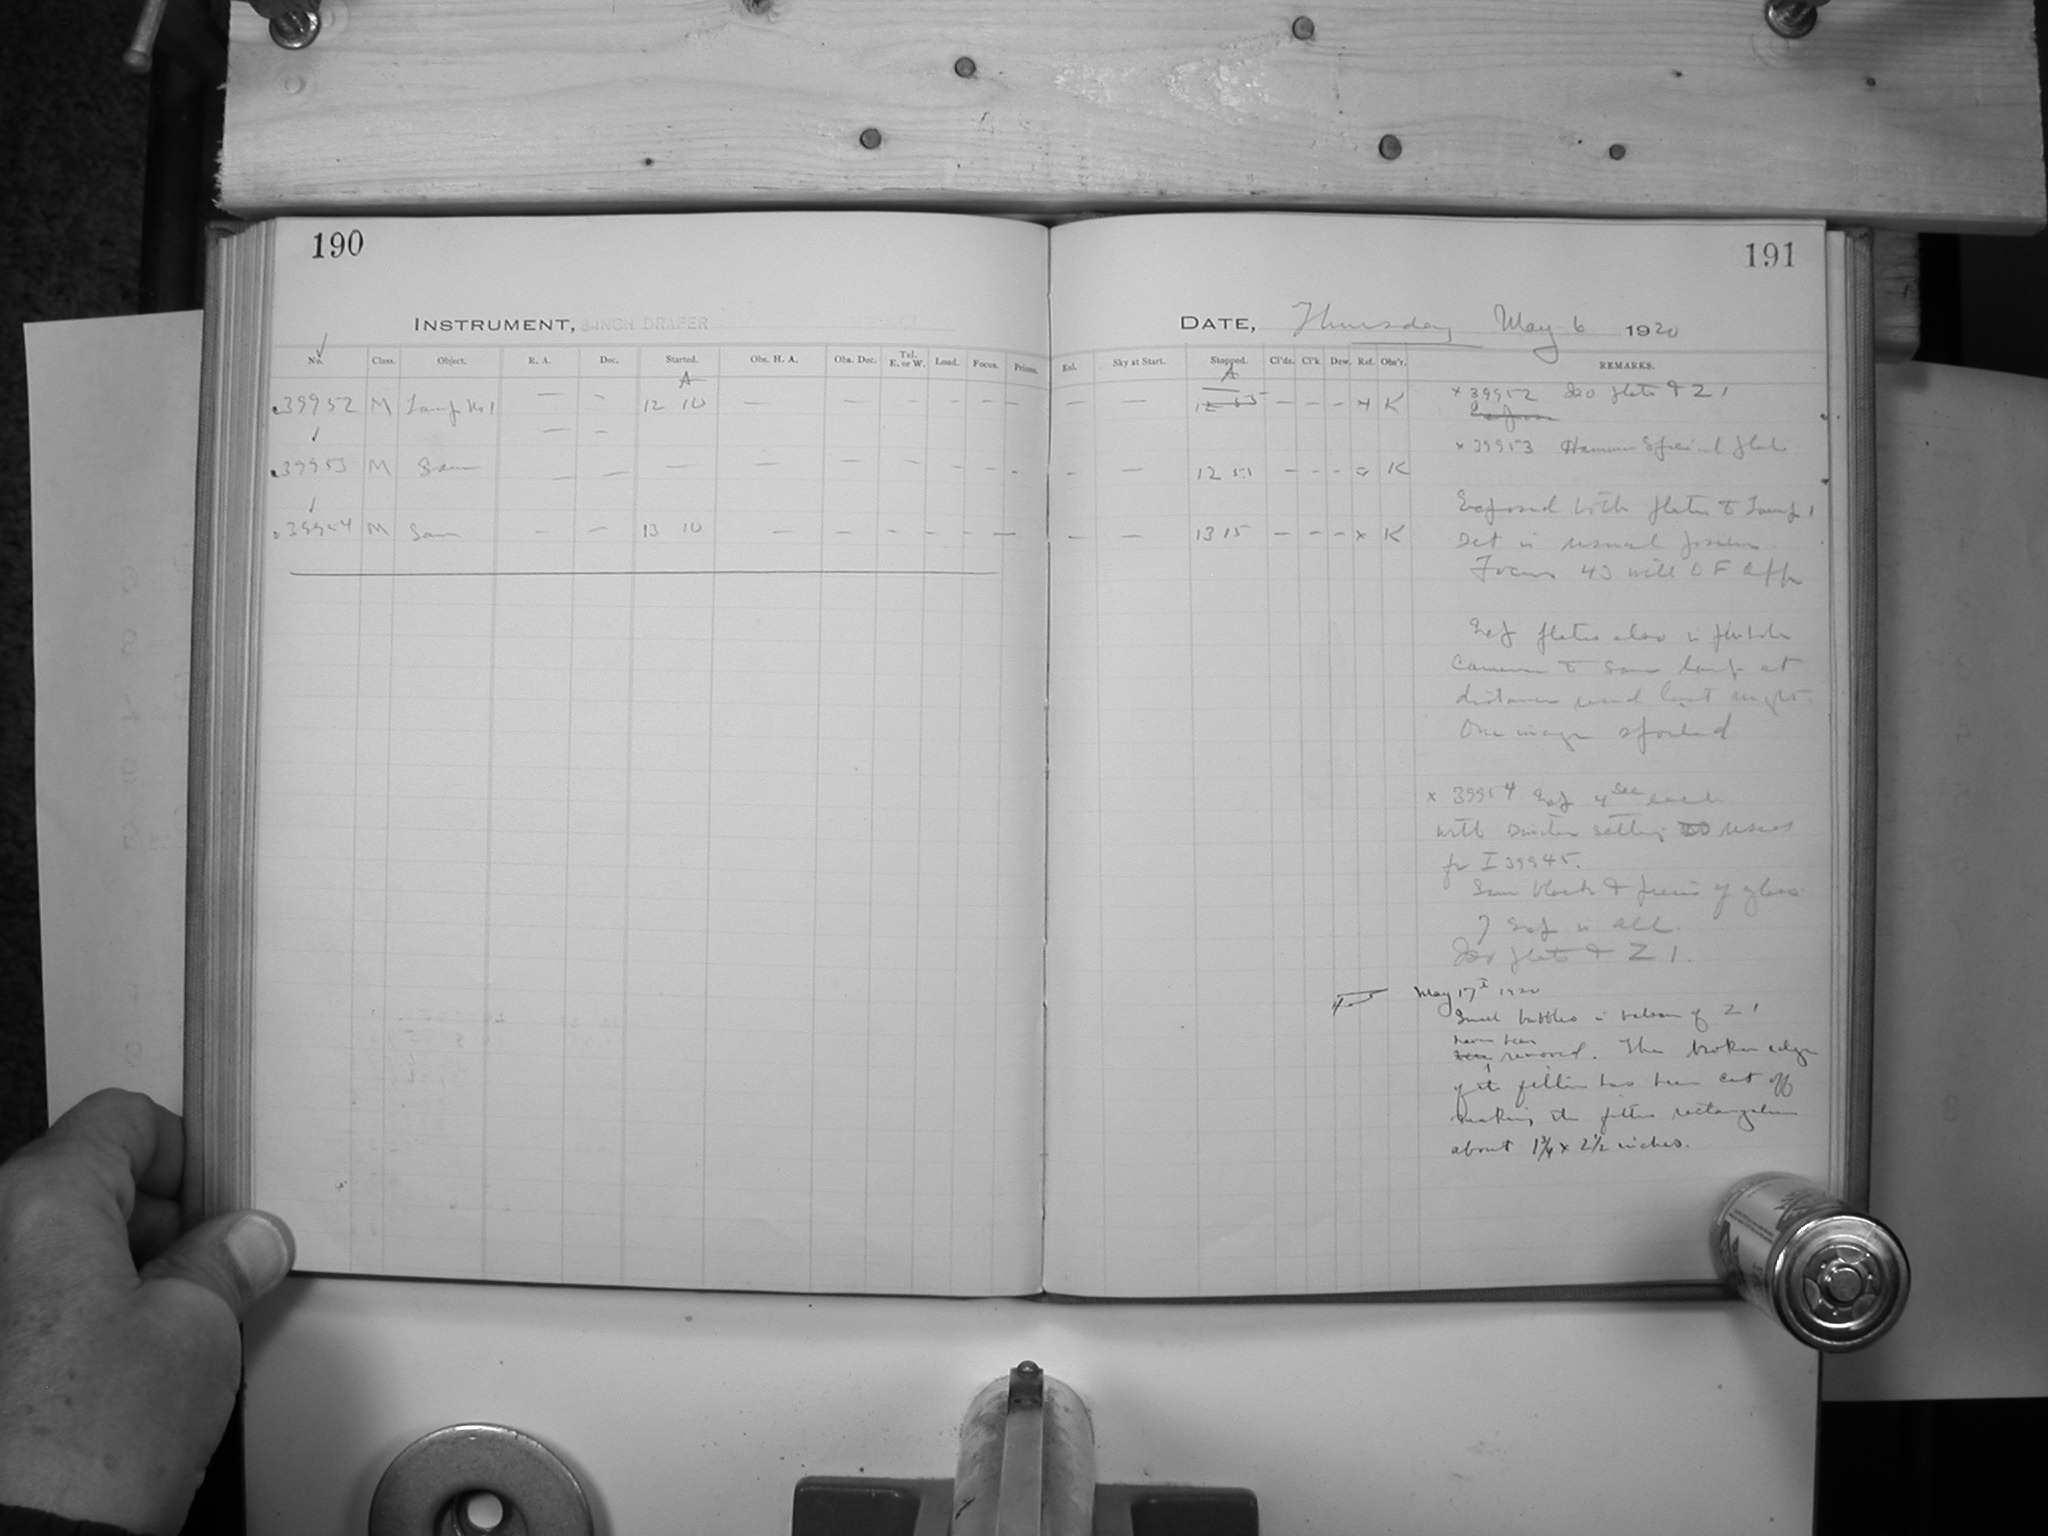 190
INSTRUMENT, 8 INCH DRAPER
No. Class. Object. R. A. Dec. Started. Obs. H. A. Obs. Dec. Tel. E. or W. Load. Focus. Prisms.
A
39952 M Lamp No 1 — — 12 10 — — — — — —
— —
39953 M Same — — — — — — — — —
39954 M Same — — 13 10 — — — — — —
191
DATE, Thursday May 6 1920
Exl. Sky at Start. Stopped. Cl'ds. Cl'k Dew. Ref. Obs'r. REMARKS.
A
— — 12 55 — — — x K
— — 12 55 — — — = K
— — 13 15 — — — x K
x 39952 Iso plate & Z 1
x 39953 Hammer Special plate
Exposed both plates to Lamp 1
Set in usual position
Focus 43 with OF app
Exp plates also in pinhole
Camera to same lamp at
distance used last night.
One image spoiled
x 39954 Exp 4 sec each
with setting used
for I 39945.
Same block & piece of glass
7 Exp in all.
Iso plate & Z 1.
May 17 1920
Small bubbles in balsam of Z 1
have been
removed. The broken edge
of the filter has been cut off
making the filter rectangular
about 1¾ x 2½ inches.